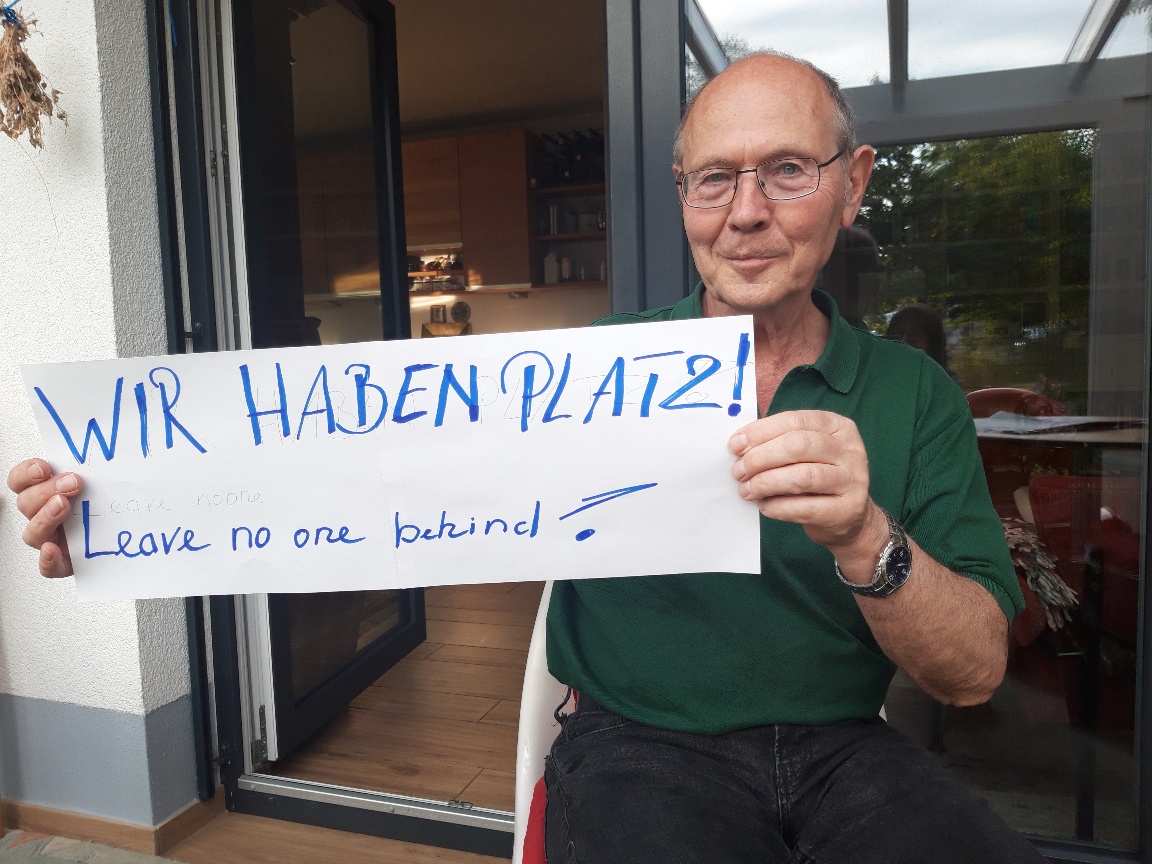 WIR HABEN PLATZ!
Leave noone
Leave no one behind!